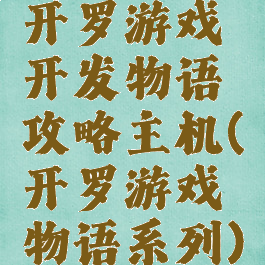 开罗游戏
开发物语
攻略主机(
开罗游戏
物语系列)